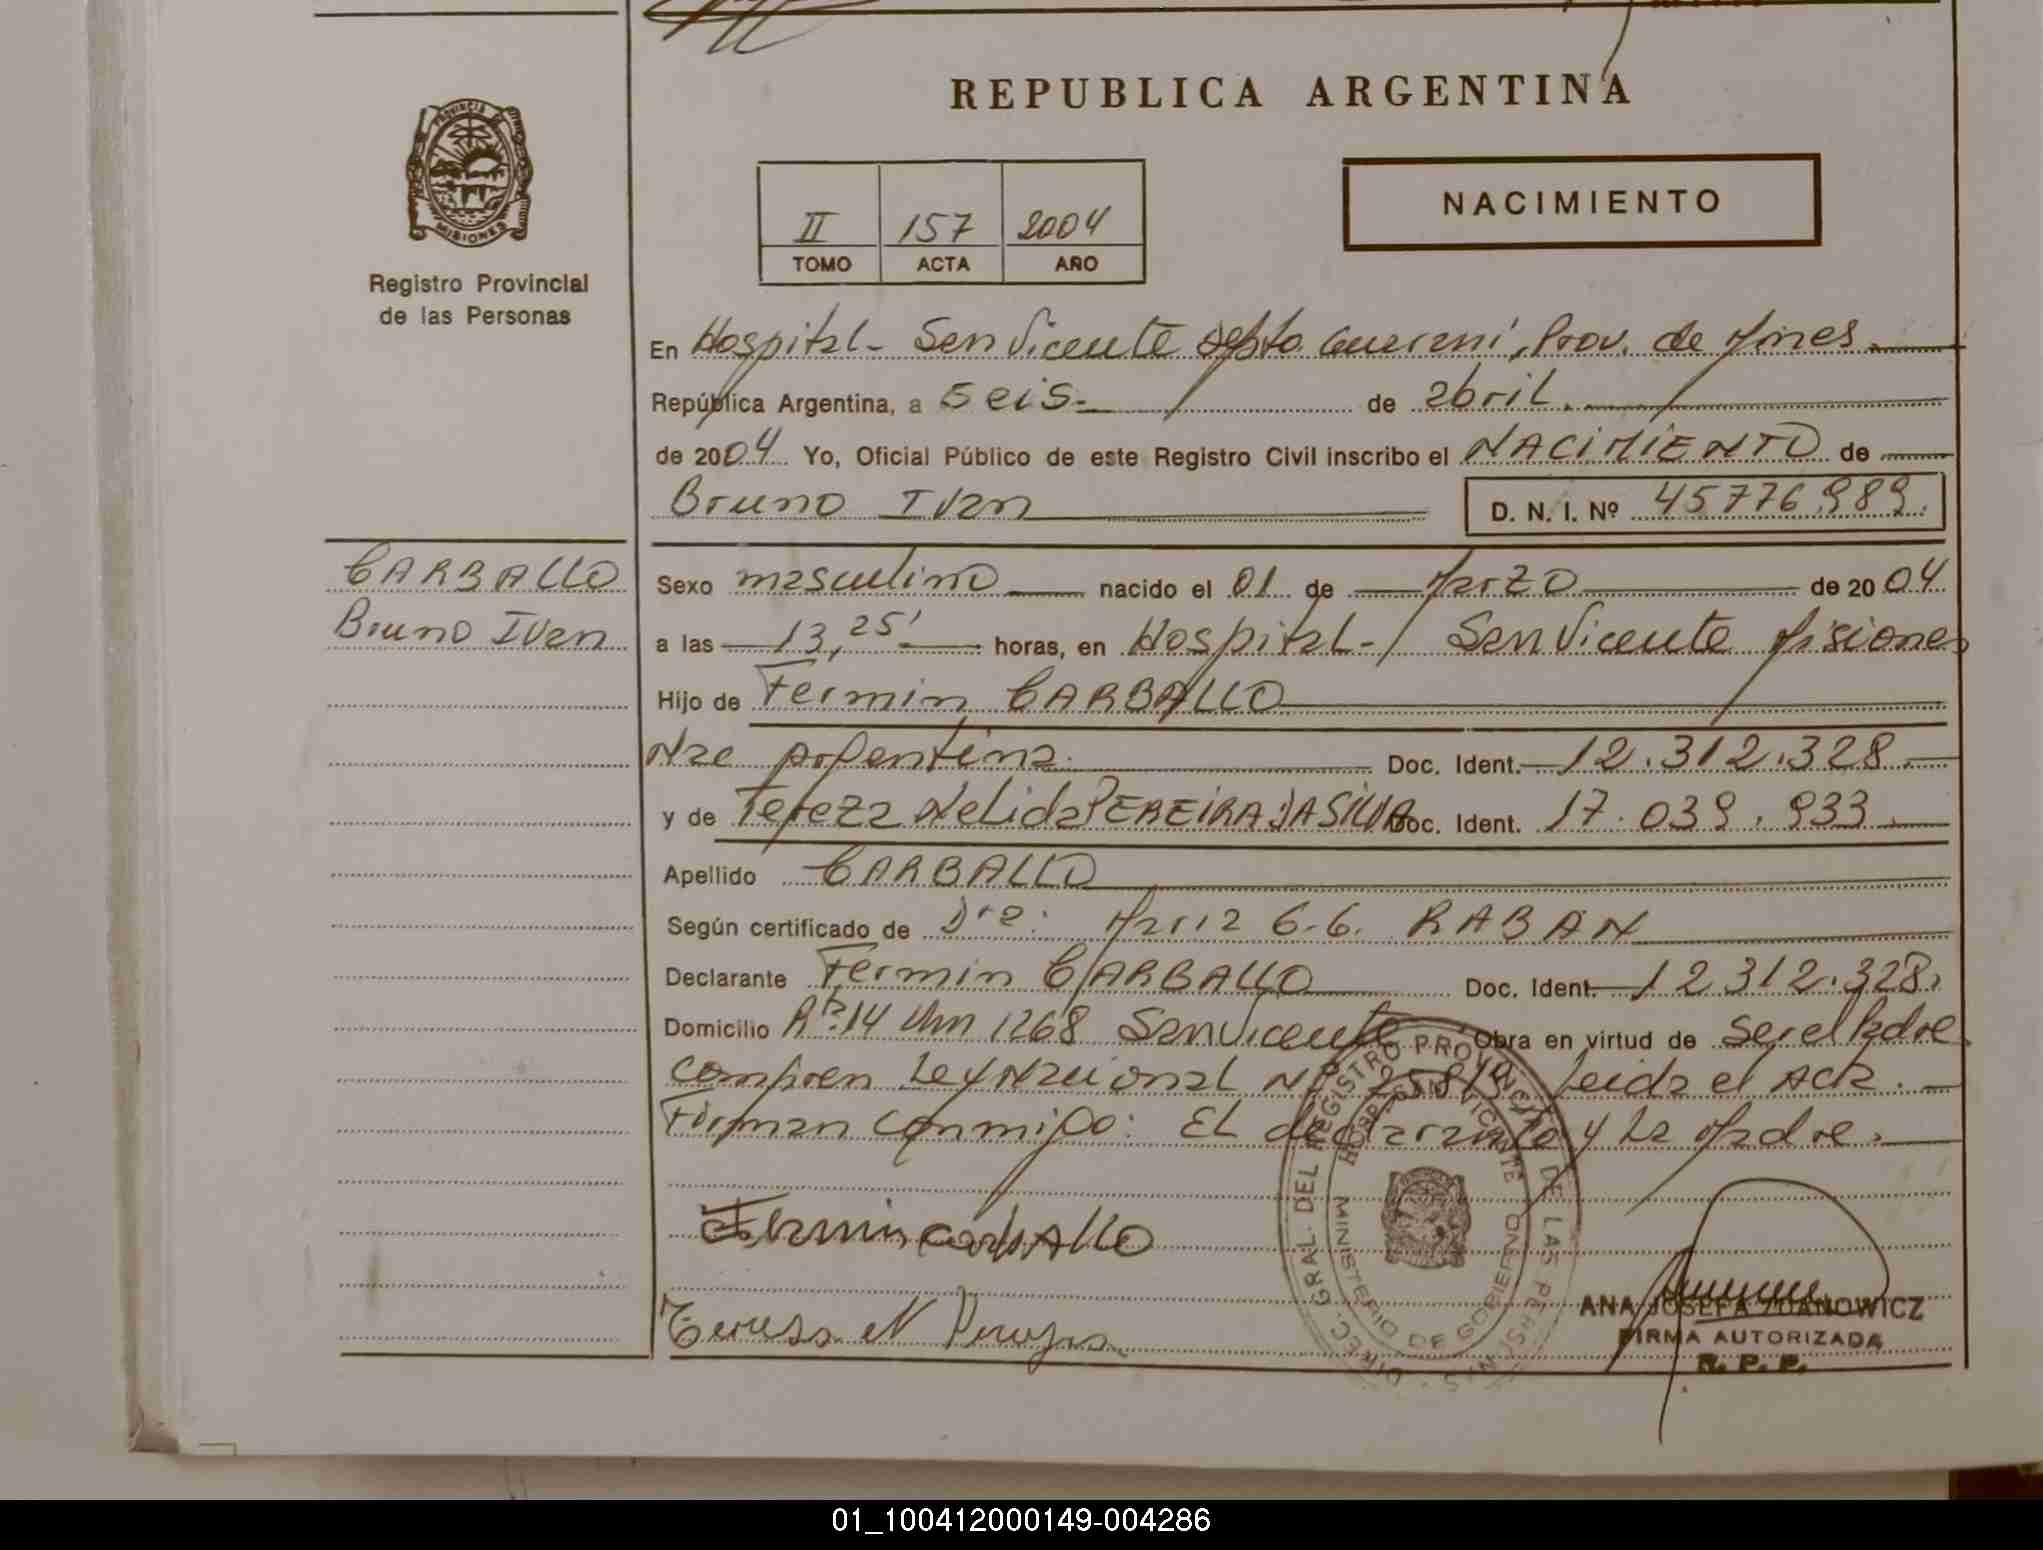 REPUBLICA ARGENTINA
PROVINCIA DE
MISIONES
Registro Provincial
de las Personas
II 157 2004
TOMO ACTA AÑO
NACIMIENTO
En Hospital - San Vicente Depto Guarani, Prov. de Mnes
República Argentina, a seis de abril.
de 2004 Yo, Oficial Público de este Registro Civil inscribo el NACIMIENTO de
Bruno Ivan D. N. I. Nº 45776989.
CARBALLO
Bruno Ivan
Sexo masculino nacido el 01 de Marzo de 2004
a las 13,25' horas, en Hospital - San Vicente Misiones
Hijo de Fermin CARBALLO
Nac argentina. Doc. Ident. 12.312.328
y de Tereza Nelida PEREIRA DA SILVA Doc. Ident. 17.039.933
Apellido CARBALLO
Según certificado de Dra: Maria G.G. RABAN
Declarante Fermin CARBALLO Doc. Ident. 12312.328.
Domicilio Rª.14 Km 1268 San Vicente Obra en virtud de ser el Padre
Compren Ley Nacional Nº 25819. Leida el Acta.
Firman conmigo: El declarante y la Madre.
Fermin carballo
Teresa N
DIREC. GRAL. DEL REGISTRO PROVINCIAL DE LAS PERSONAS
MINISTERIO DE GOBIERNO
ANA JOSEFA ZDANOWICZ
FIRMA AUTORIZADA
R. P. P.
01_100412000149-004286